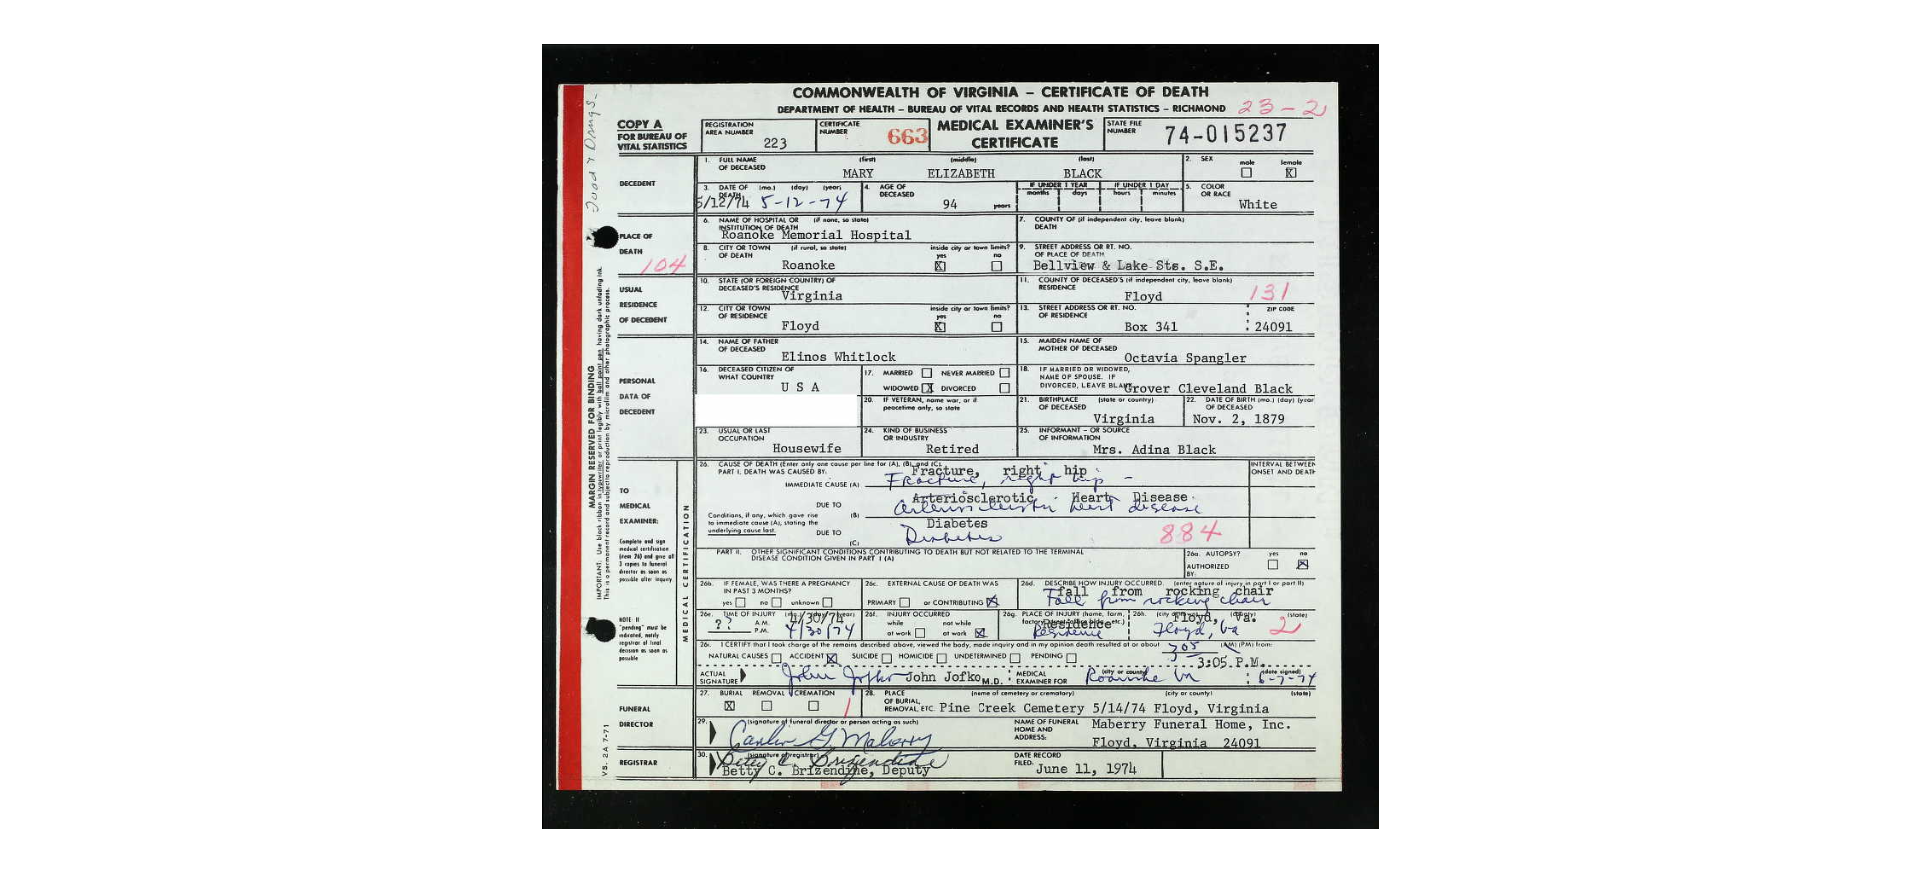 COMMONWEALTH OF VIRGINIA – CERTIFICATE OF DEATH
DEPARTMENT OF HEALTH – BUREAU OF VITAL RECORDS AND HEALTH STATISTICS – RICHMOND 23-2
COPY A
FOR BUREAU OF
VITAL STATISTICS
REGISTRATION
AREA NUMBER 223
CERTIFICATE
NUMBER 663
MEDICAL EXAMINER'S
CERTIFICATE
STATE FILE
NUMBER 74-015237
DECEDENT
1. FULL NAME
OF DECEASED
(first) (middle) (last)
MARY ELIZABETH BLACK
2. SEX
male female
☐ ☒
3. DATE OF (mo.) (day) (year)
DEATH
5/12/74 5-12-74
4. AGE OF
DECEASED
94 years
IF UNDER 1 YEAR IF UNDER 1 DAY
months days hours minutes
5. COLOR
OR RACE
White
PLACE OF
DEATH
104
6. NAME OF HOSPITAL OR (if none, so state)
INSTITUTION OF DEATH
Roanoke Memorial Hospital
7. COUNTY OF (if independent city, leave blank)
DEATH
8. CITY OR TOWN (if rural, so state)
OF DEATH
Roanoke
inside city or town limits?
yes no
☒ ☐
9. STREET ADDRESS OR RT. NO.
OF PLACE OF DEATH
Bellview & Lake Sts. S.E.
USUAL
RESIDENCE
OF DECEDENT
10. STATE (OR FOREIGN COUNTRY) OF
DECEASED'S RESIDENCE
Virginia
11. COUNTY OF DECEASED'S (if independent city, leave blank)
RESIDENCE
Floyd 131
12. CITY OR TOWN
OF RESIDENCE
Floyd
inside city or town limits?
yes no
☒ ☐
13. STREET ADDRESS OR RT. NO.
OF RESIDENCE
Box 341
ZIP CODE
24091
PERSONAL
DATA OF
DECEDENT
14. NAME OF FATHER
OF DECEASED
Elinos Whitlock
15. MAIDEN NAME OF
MOTHER OF DECEASED
Octavia Spangler
16. DECEASED CITIZEN OF
WHAT COUNTRY
U S A
17. MARRIED ☐ NEVER MARRIED ☐
WIDOWED ☒ DIVORCED ☐
18. IF MARRIED OR WIDOWED,
NAME OF SPOUSE. IF
DIVORCED, LEAVE BLANK
Grover Cleveland Black
20. IF VETERAN, name war, or if
peacetime only, so state
21. BIRTHPLACE (state or country)
OF DECEASED
Virginia
22. DATE OF BIRTH (mo.) (day) (year
OF DECEASED
Nov. 2, 1879
23. USUAL OR LAST
OCCUPATION
Housewife
24. KIND OF BUSINESS
OR INDUSTRY
Retired
25. INFORMANT – OR SOURCE
OF INFORMATION
Mrs. Adina Black
TO
MEDICAL
EXAMINER:
Complete and sign
medical certification
(item 26) and give all
3 copies to funeral
director as soon as
possible after inquiry
NOTE: If
"pending" must be
indicated, notify
registrar of final
decision as soon as
possible
MEDICAL CERTIFICATION
26. CAUSE OF DEATH (Enter only one cause per line for (A), (B), and (C).
PART I. DEATH WAS CAUSED BY:
INTERVAL BETWEEN
ONSET AND DEATH
IMMEDIATE CAUSE (A)
Fracture, right hip
Fracture, right hip –
Conditions, if any, which gave rise
to immediate cause (A), stating the
underlying cause last.
DUE TO
(B)
Arteriosclerotic Heart Disease
Arteriosclerotic heart disease
DUE TO
(C)
Diabetes
Diabetes
884
PART II. OTHER SIGNIFICANT CONDITIONS CONTRIBUTING TO DEATH BUT NOT RELATED TO THE TERMINAL
DISEASE CONDITION GIVEN IN PART I (A)
26a. AUTOPSY? yes no
AUTHORIZED ☐ ☒
BY:
26b. IF FEMALE, WAS THERE A PREGNANCY
IN PAST 3 MONTHS?
yes ☐ no ☐ unknown ☐
26c. EXTERNAL CAUSE OF DEATH WAS
PRIMARY ☐ or CONTRIBUTING ☒
26d. DESCRIBE HOW INJURY OCCURRED. (enter nature of injury in part I or part II)
fall from rocking chair
Fall from rocking chair
26e. TIME OF INJURY (mo.) (day) (year)
?? A.M.
P.M.
4/30/74
4/30/74
26f. INJURY OCCURRED
while not while
at work ☐ at work ☒
26g. PLACE OF INJURY (home, farm,
factory, street, office bldg., etc.)
Residence
Residence
26h. (city or town) (county) (state)
Floyd, Va.
Floyd, Va
2
26i. I CERTIFY that I took charge of the remains described above, viewed the body, made inquiry and in my opinion death resulted at or about 305 (AM) (PM) from:
NATURAL CAUSES ☐ ACCIDENT ☒ SUICIDE ☐ HOMICIDE ☐ UNDETERMINED ☐ PENDING ☐
3:05 P.M.
ACTUAL
SIGNATURE
John Jofko John Jofko M.D.
MEDICAL
EXAMINER FOR
(city or county)
Roanoke Va
(date signed)
6-7-74
FUNERAL
DIRECTOR
27. BURIAL REMOVAL CREMATION
☒ ☐ ☐ 1
28. PLACE
OF BURIAL,
REMOVAL, ETC.
(name of cemetery or crematory) (city or county) (state)
Pine Creek Cemetery 5/14/74 Floyd, Virginia
29. (signature of funeral director or person acting as such)
Carlin G Maberry
NAME OF FUNERAL
HOME AND
ADDRESS:
Maberry Funeral Home, Inc.
Floyd, Virginia 24091
REGISTRAR
30. (signature of registrar)
Betty C. Brizendine
Betty C. Brizendine, Deputy
DATE RECORD
FILED:
June 11, 1974
MARGIN RESERVED FOR BINDING
IMPORTANT: Use black ribbon in typewriter or print legibly with ball point pen having dark unfading ink.
This is a permanent record and subject to reproduction by microfilm and other photographic process.
VS. 2A 7-71